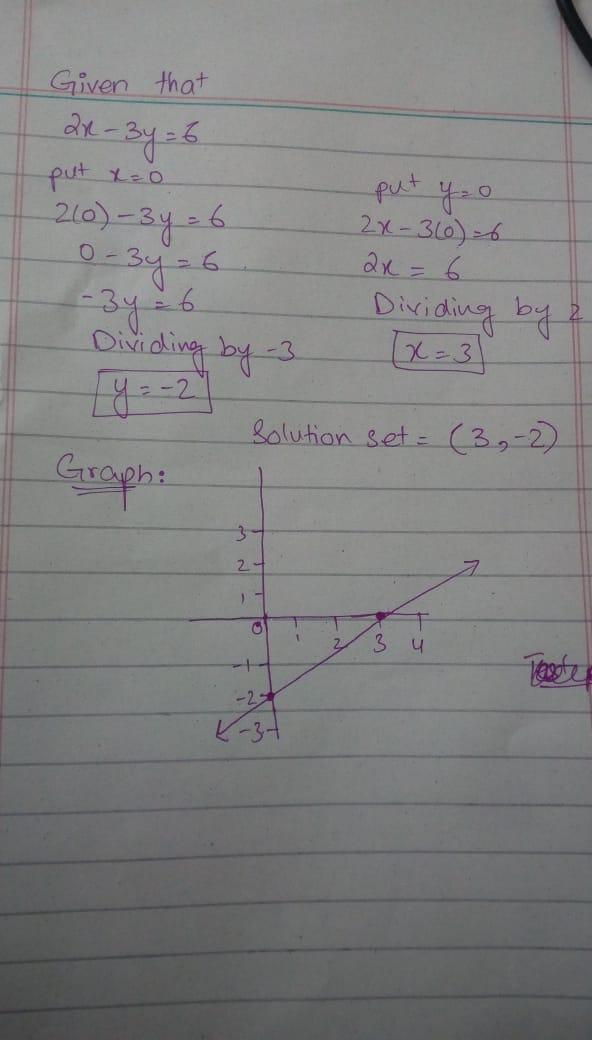 Given that
2x - 3y = 6
put x = 0
2(0) - 3y = 6
0 - 3y = 6
-3y = 6
Dividing by -3
y = -2
put y = 0
2x - 3(0) = 6
2x = 6
Dividing by 2
x = 3
Solution set = (3, -2)
Graph:
3
2
1
0 1 2 3 4
-1
-2
-3